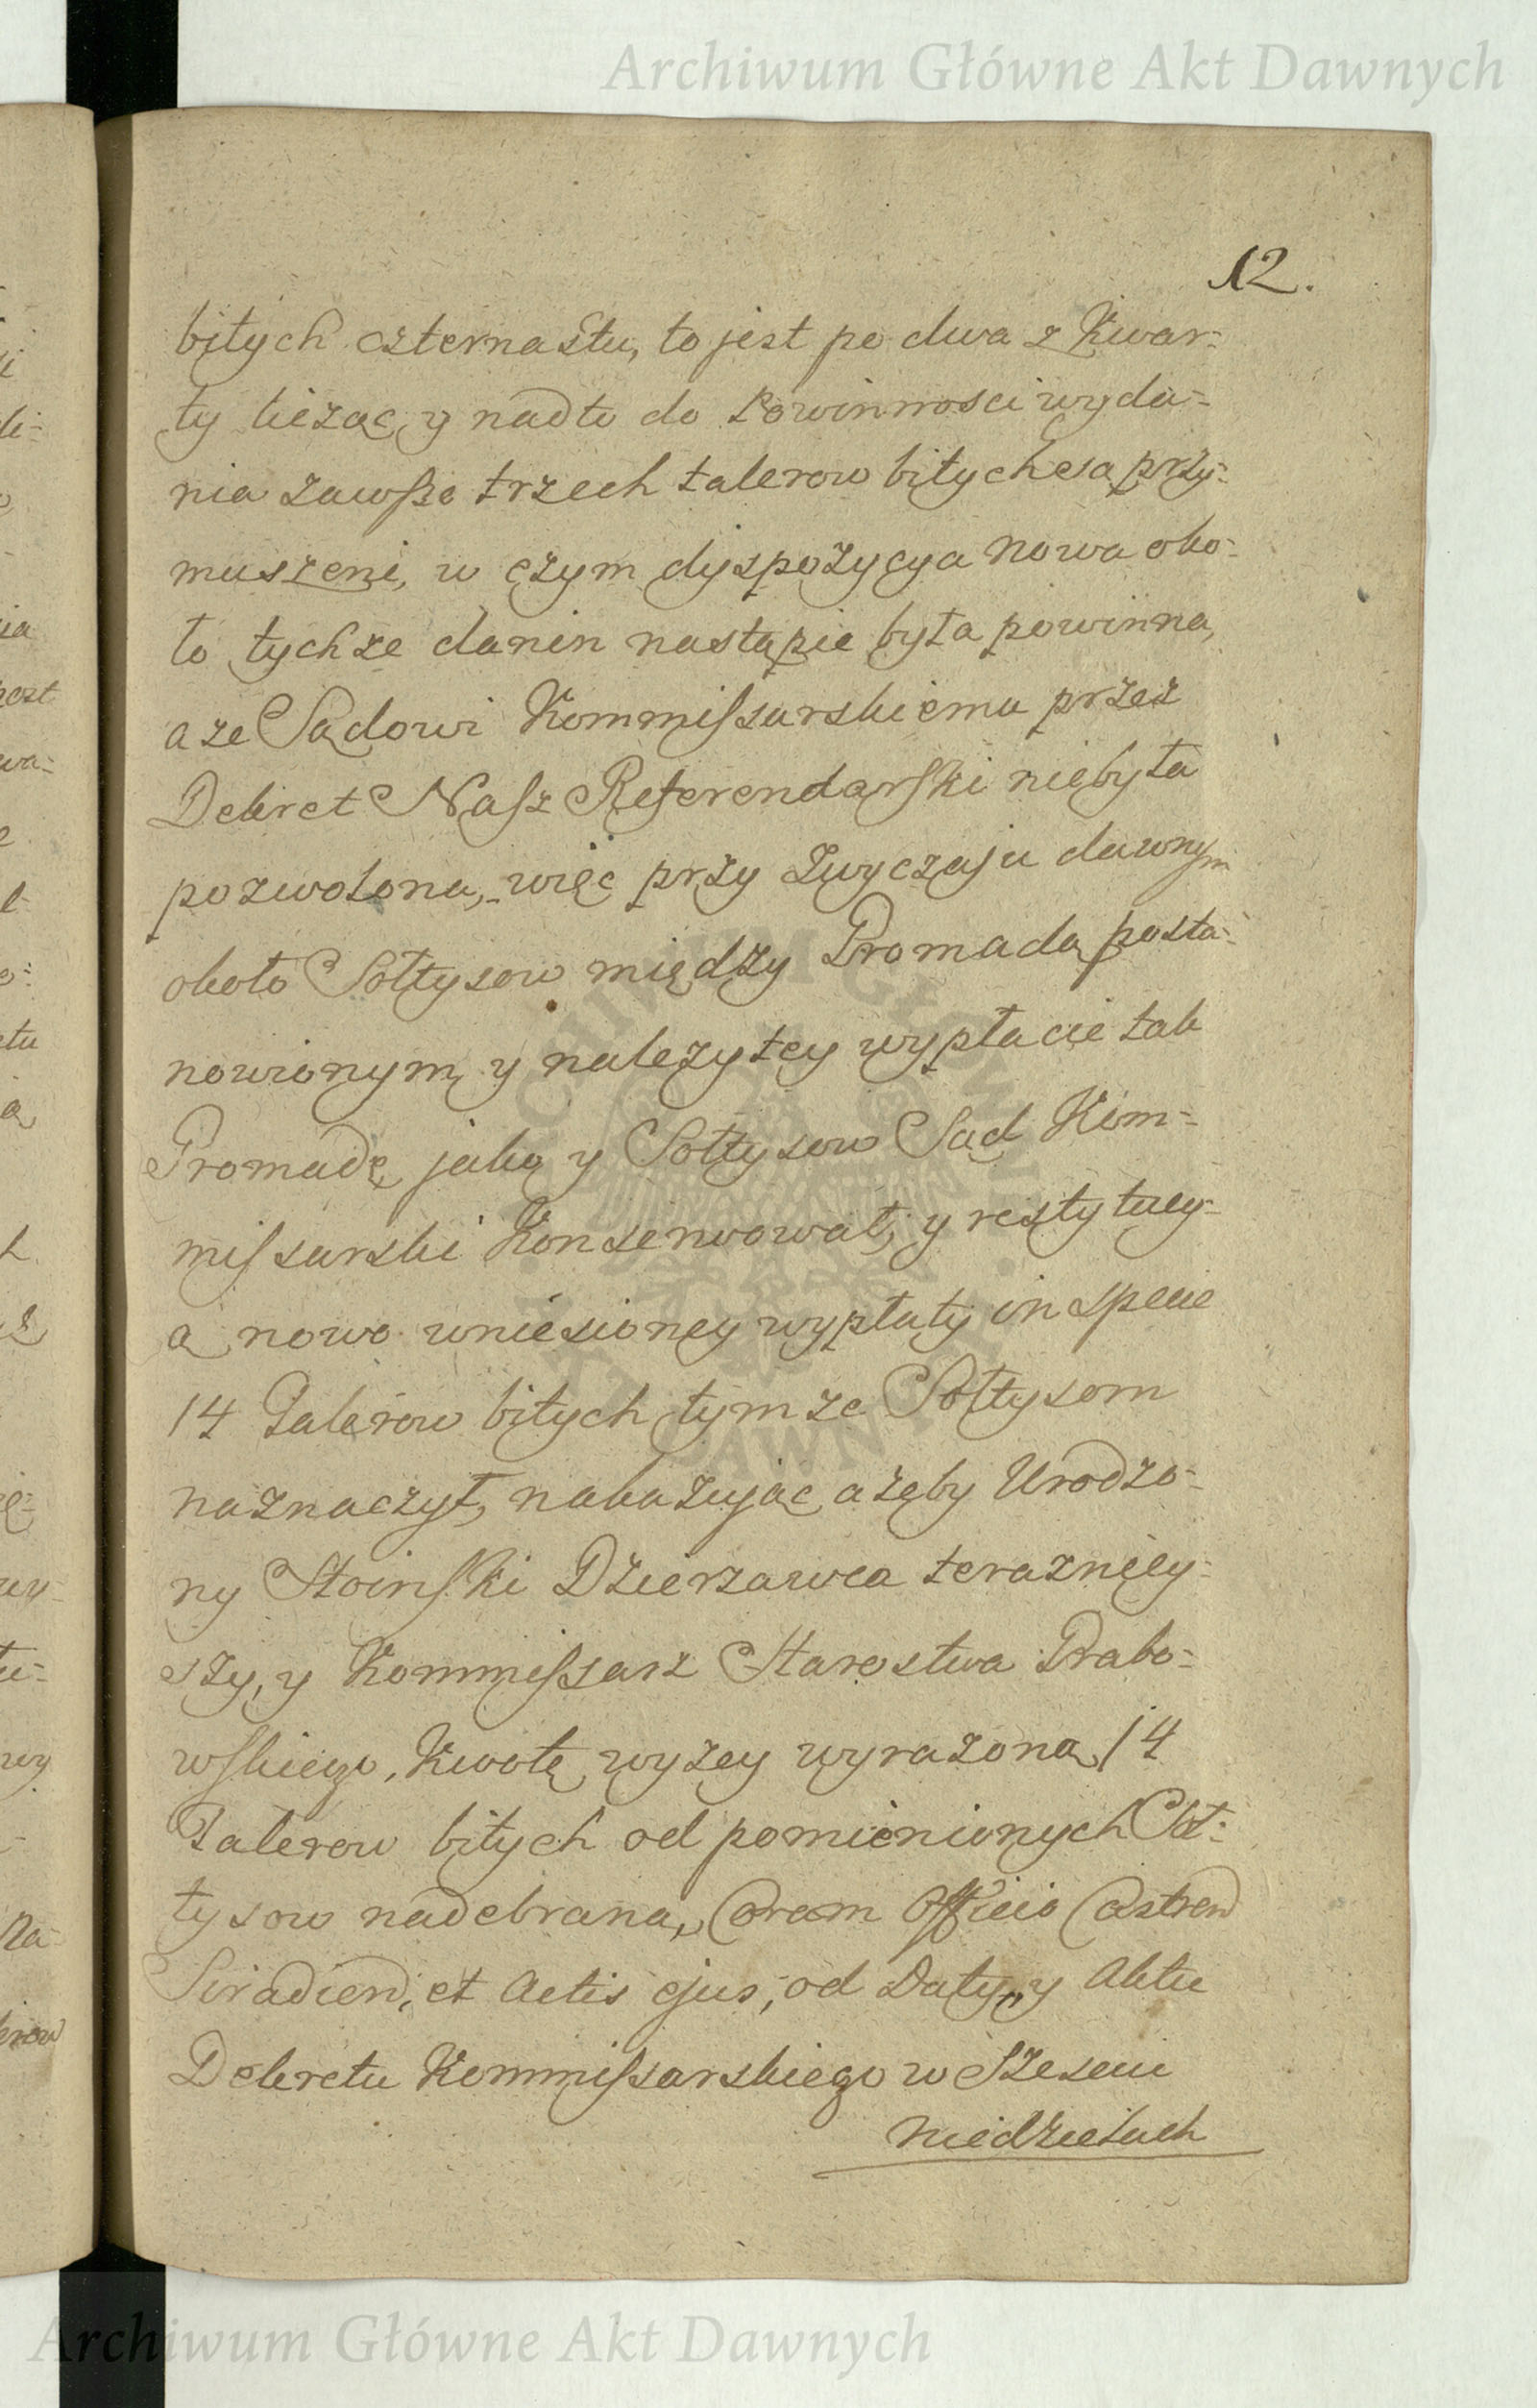 Archiwum Główne Akt Dawnych
12.
bitych czternastu, to jest po dwa z Kwar-
ty licząc, y nadto do Powinnosci wyda-
nia zawsze trzech talerow bitych są przy-
muszeni, w czym dyspozycya nowa oko-
ło tychże danin nastąpic była powinna,
a ze Sądowi Kommissarskiemu przez
Dekret Nasz Referendarski niebyła
pozwolona, więc przy Zwyczaju dawnym
około Sołtysow między Gromadą posta-
nowionym, y należytey wypłacie tak
Gromadę jako y Sołtysow Sąd Kom-
missarski Konserwował, y restytucy-
ą nowo wniesioney wypłaty in specie
14 Talerow bitych tymże Sołtysom
naznaczył, nakazując ażeby Urodzo-
ny Stoinski Dzierzawca terazniey-
szy, y Kommissarz Starostwa Grabo-
wskiego, Kwotę wyzey wyrazoną 14
Talerow bitych od pomienionych Soł-
tysow nadebraną, Coram Officio Castren
Siradien, et Actis ejus, od Daty, y Aktu
Dekretu Kommissarskiego w Szesciu
niedzielach
Archiwum Główne Akt Dawnych